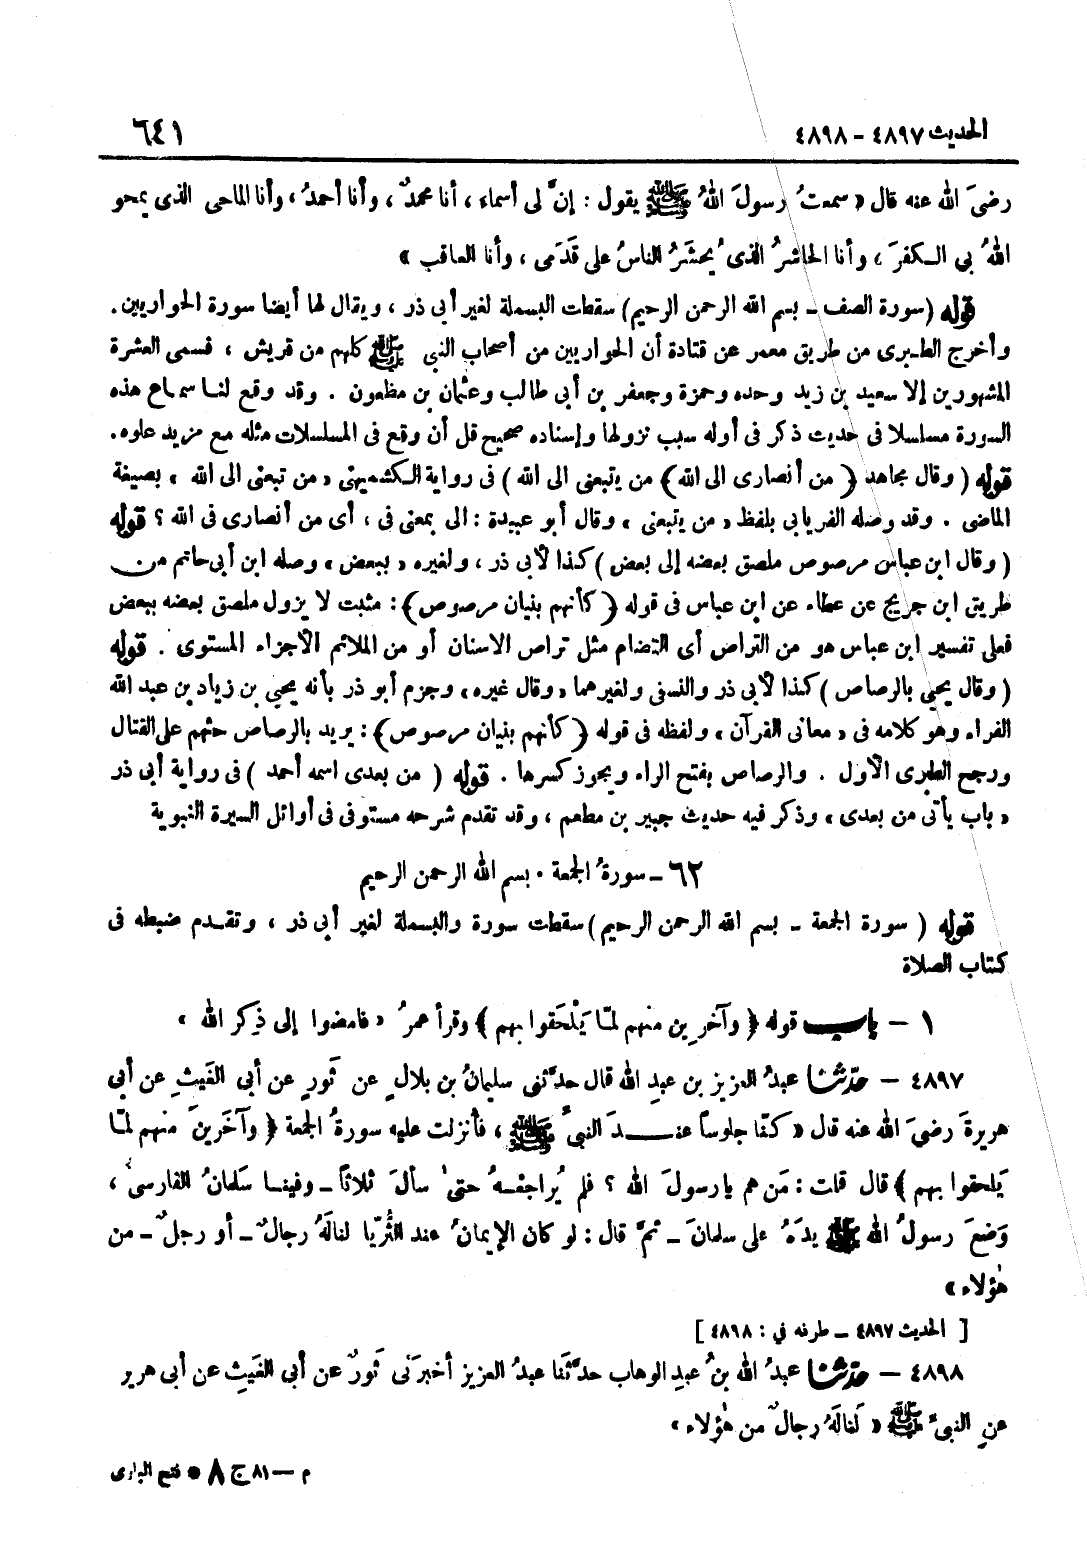 الحديث ٤٨٩٧ - ٤٨٩٨ ٦٤١
رضىَ الله عنه قال « سمعتُ رسولَ اللهُ ﷺ يقول : إنَّ لى أسماء ، أنا محمدٌ ، وأنا أحمدُ ، وأنا الماحى الذى يمحو
اللهُ بى الـكفرَ ، وأنا الحاشرُ الذىُ يُحشَرُ الناسُ على قدَمى ، وأنا العاقب »
قوله ( سورة الصف - بسم الله الرحمن الرحيم) سقطت البسملة لغير أبى ذر ، ويقال لها أيضا سورة الحواريين .
وأخرج الطبرى من طريق معمر عن قتادة أن الحواريين من أصحاب النبى ﷺ كلهم من قريش ، فسمى العشرة
المشهورين إلا سعيد بن زيد وحده وحمزة وجعفر بن أبى طالب وعثمان بن مظعون . وقد وقع لنا سماع هذه
السورة مسلسلا فى حديث ذكر فى أوله سبب نزولها وإسناده صحيح قل أن وقع فى المسلسلات مثله مع مزيد علوه.
قوله ( وقال مجاهد ﴿ من أنصارى الى الله﴾ من يتبعنى الى الله ) فى رواية الـكشميهنى « من تبعنى الى الله ، بصيغة
الماضى . وقد وصله الفريابى بلفظ « من يتبعنى » وقال أبو عبيدة : الى بمعنى فى ، أى من أنصارى فى الله ؟ قوله
( وقال ابن عباس مرصوص ملصق بعضه إلى بعض ) كذا لأبى ذر ، ولغيره « ببعض » وصله ابن أبى حاتم من
طريق ابن جريج عن عطاء عن ابن عباس فى قوله ﴿ كأنهم بنيان مرصوص﴾ : مثبت لا يزول ملصق بعضه ببعض
فعلى تفسير ابن عباس هو من التراص أى التضام مثل تراص الاسنان أو من الملائم الأجزاء المستوى . قوله
( وقال يحيى بالرصاص ) كذا لأبى ذر والنسفى ولغيرهما « وقال غيره » وجزم أبو ذر بأنه يحيى بن زياد بن عبد الله
الفراء وهو كلامه فى « معانى القرآن » ولفظه فى قوله ﴿ كأنهم بنيان مرصوص﴾ : يريد بالرصاص حثهم على القتال
ورجح الطبرى الأول . والرصاص بفتح الراء ويجوز كسرها . قوله ( من بعدى اسمه أحمد ) فى رواية أبى ذر
« باب يأتى من بعدى » وذكر فيه حديث جبير بن مطعم ، وقد تقدم شرحه مستوفى فى أوائل السيرة النبوية
٦٢ - سورةُ الجمعة . بسم الله الرحمن الرحيم
قوله ( سورة الجمعة - بسم الله الرحمن الرحيم) سقطت سورة والبسملة لغير أبى ذر ، وتقدم ضبطه فى
كتاب الصلاة
١ - باب قوله ﴿ وآخرِين منهم لمّا يَلْحَقوا بهم ﴾ وقرأ عمرُ « فامضوا إلى ذِكر الله »
٤٨٩٧ - حدّثنا عبدُ العزيز بن عبدِ الله قال حدَّثنى سليمانُ بن بلالٍ عن ثورٍ عن أبى الغَيثِ عن أبى
هريرةَ رضىَ الله عنه قال « كنّا جلوساً عنـدَ النبىِّ ﷺ ، فأنزلت عليه سورةُ الجمعة ﴿ وآخَرينَ منهم لمّا
يَلحقوا بهم ﴾ قال قلت : مَن هم يا رسولَ الله ؟ فلم يُراجعْـهُ حتىٰ سألَ ثلاثاً - وفينـا سَلمانُ الفارسىُّ ،
وَضعَ رسولُ الله ﷺ يدَهُ على سلمانَ - ثمَّ قال : لو كان الإيمانُ عند الثُّريّا لنالهُ رجالٌ - أو رجلٌ - من
هٰؤلاء »
[ الحديث ٤٨٩٧ - طرفه في : ٤٨٩٨ ]
٤٨٩٨ - حدّثنا عبدُ الله بنُ عبدِ الوهاب حدَّثَنا عبدُ العزيز أخبرَنى ثورٌ عن أبى الغَيثِ عن أبى هرير
عنِ النبىِّ ﷺ « لَنالهُ رجالٌ من هٰؤلاء »
م — ٨١ ج ٨ * فتح البارى